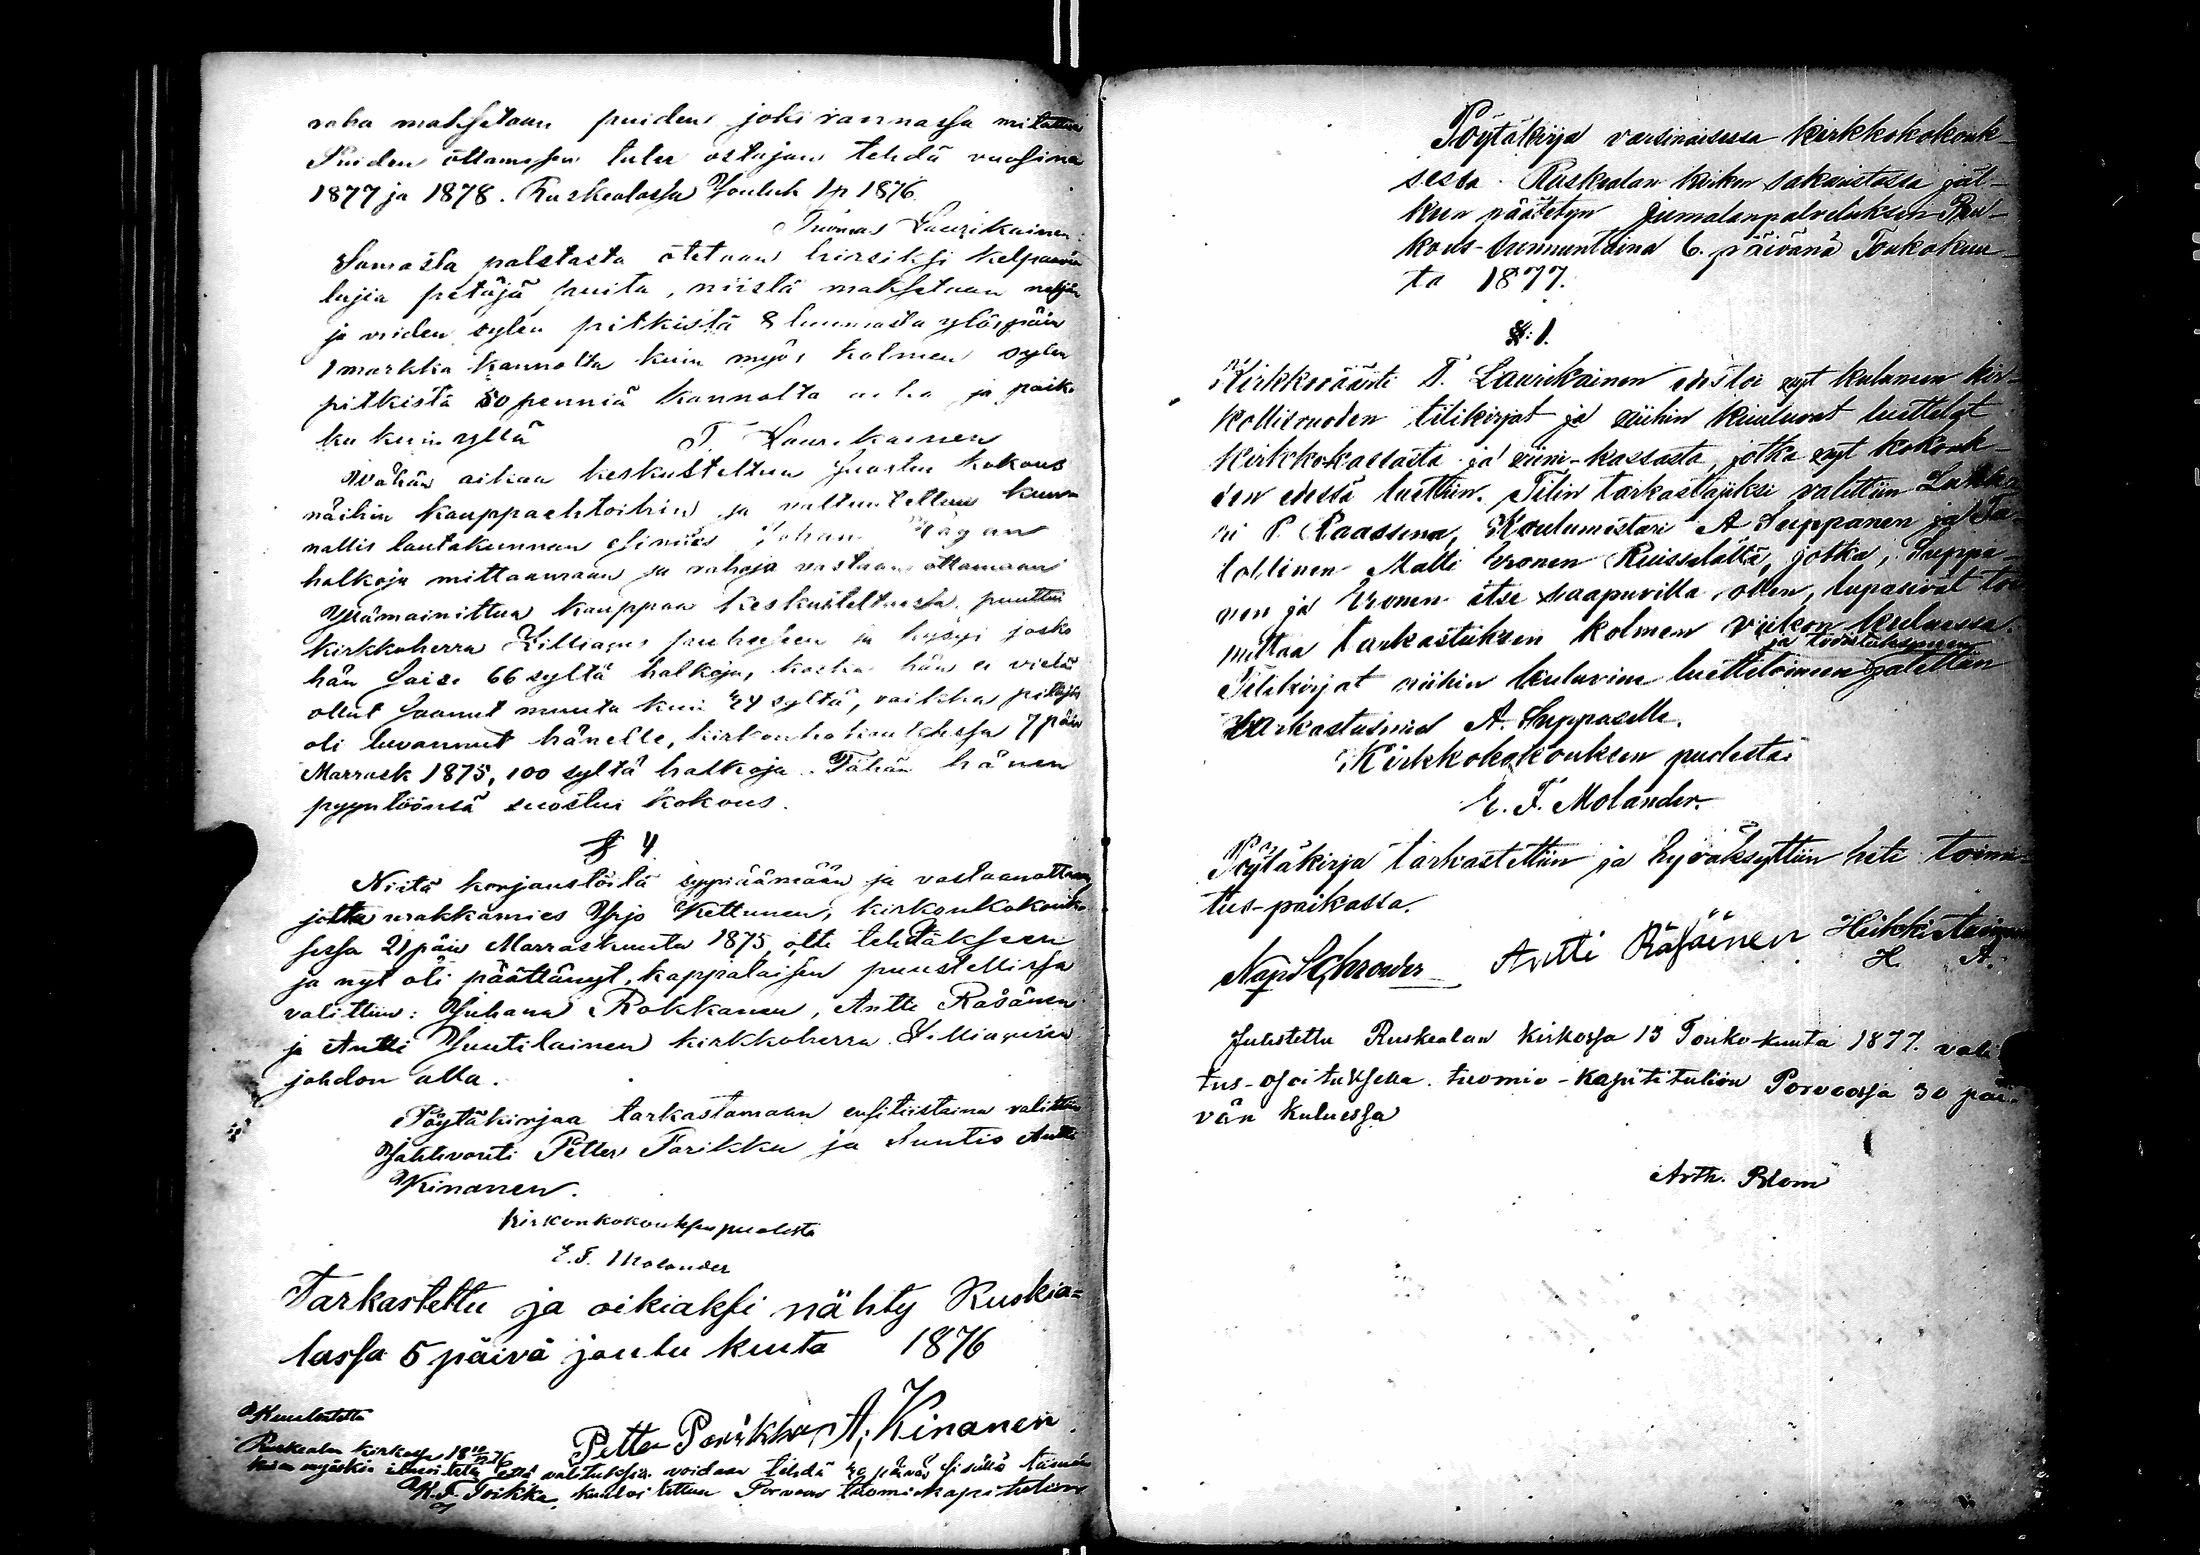 raha maksetaan puiden jokirannassa mitattua
Puiden ottamisen tulee ostajan tehdä vuosina
1877 ja 1878. Ruskealassa Jouluk 1p 1876.
Tuomas Laurikainen.
Samasta palstasta otetaan hirsiksi kelpaavia
lujia petäjä puita, niistä maksetaan neljän
ja viiden sylen pitkistä 8 tuumasta ylöspäin
1 markka kannolta kuin myös kolmen sylen
pitkistä 50 penniä kannolta aika ja paik-
ka kuin yllä T. Laurikainen
Vähän aikaa keskusteltua suostui kokous
näihin kauppaehtoihin ja valtuutettiin kunn
nallis lautakunnan esimies Johan Hägan
halkoja mittaamaan ja rahoja vastaan ottamaan
Ylämainittua kauppaa keskusteltuissa puuttui
kirkkoherra Lilliagus puheeseen ja kysyi josko
hän saisi 66 syltä halkoja, koska hän ei vielä
ollut saanut muuta kuin 24 syltä, vaikka pitäjä
oli luvannut hänelle, kirkonkokouksessa 7 päiv
Marrask 1875, 100 syltä halkoja. Tähän hänen
pyyntöönsä suostui kokous.
§ 4
Niitä korjaustöitä syynäämään ja vastaanottam
jotka urakkamies Yrjö Kettunen, kirkonkokouk-
sessa 21 päiv Marraskuuta 1875, otti tehdäkseen
ja nyt oli päättänyt, kappalaisen puustellissa
valittiin: Juhana Rokkanen, Antti Räsänen
ja Antti Juutilainen kirkkoherra Lilliagusen
johdon alla.
Pöytäkirjaa tarkastamaan ensitiistaina valittiin
Jahtivouti Petter Parikka ja Suntio Antti
Kinanen.
Kirkonkokouksen puolesta
E. F. Molander
Tarkastettu ja oikiaksi nähty Ruskia=
lassa 5 päivä joulu kuuta 1876
Petter Parikka A. Kinanen.
Kuulutettu
Ruskealan kirkossa 18 10/12 76
kuin myöskin ilmoitettu että valituksia voidaan tehdä 30 päivän sisällä
K. F. Toikka, kuuloitettua Porvoon tuomiokapitulion
Pöytäkirja varsinaisessa kirkkokokouk-
sessa Ruskealan kirkon sakaristossa jäl-
keen päätetyn jumalanpalveluksen Ru-
kous-sunnuntaina 6. päivänä Toukokuu-
ta 1877.
§ 1.
Kirkkoväärti T. Laurikainen edestoi nyt kuluneen kir-
kollisvuoden tilikirjat ja niihin kuuluvat luettelot
Kirkkokassasta ja viini-kassasta, jotka nyt kokouk-
sen edessä luettiin. Tilin tarkastajiksi valittiin Lukka-
ri P. Raassina, Koulumestari A Suppanen ja Ta-
lollinen Matti Uronen Ruisselältä, jotka, Suppa-
nen ja Uronen itse saapuvilla ollen, lupasivat toi
mittaa tarkastuksen kolmen viikon kuluessa.
ja todistuksineen
Tilikirjat niihin kuluvine luetteloineen jätettiin
tarkastusmies A. Suppaselle.
Kirkkokokouksen puolesta
E. F. Molander.
Pöytäkirja tarkastettiin ja hyväksyttiin heti toimi-
tus-paikassa.
Nap Schrowder Antti Räsäinen Heikki
H. A.
Julistettu Ruskealan kirkossa 13 Touko-kuuta 1877. vali
tus-osoituksella tuomio-kapitituliin Porvoossa 30 päi-
vän kuluessa
Arth. Blom